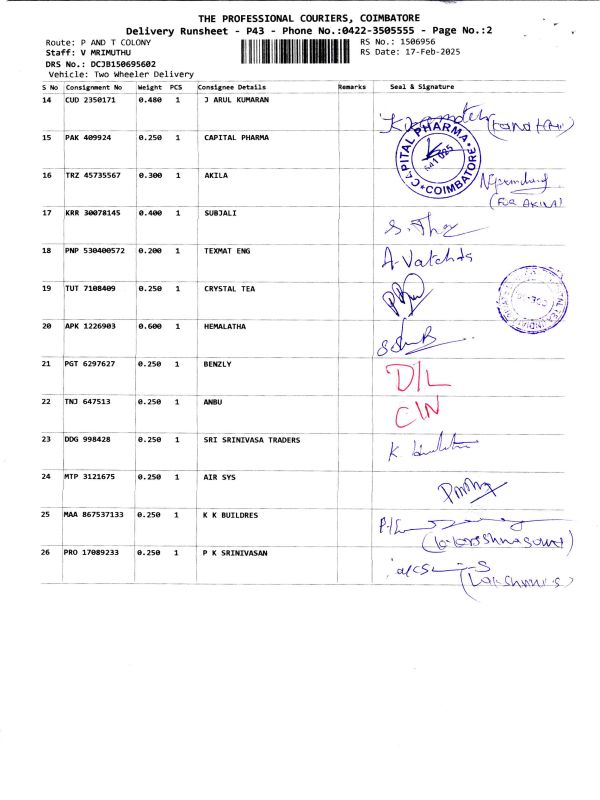 THE PROFESSIONAL COURIERS, COIMBATORE
Delivery Runsheet - P43 - Phone No.:0422-3505555 - Page No.:2
Route: P AND T COLONY
RS No.: 1506956
Staff: V MRIMUTHU
RS Date: 17-Feb-2025
DRS No.: DCJB150695602
Vehicle: Two Wheeler Delivery
S No Consignment No Weight PCS Consignee Details Remarks Seal & Signature
14 CUD 2350171 0.480 1 J ARUL KUMARAN
15 PAK 409924 0.250 1 CAPITAL PHARMA CAPITAL PHARMA COIMBATORE
16 TRZ 45735567 0.300 1 AKILA
(For AKILA)
17 KRR 30078145 0.400 1 SUBJALI
18 PNP 530400572 0.200 1 TEXMAT ENG
19 TUT 7108409 0.250 1 CRYSTAL TEA
20 APK 1226903 0.600 1 HEMALATHA
21 PGT 6297627 0.250 1 BENZLY D/L
22 TNJ 647513 0.250 1 ANBU C/N
23 DDG 998428 0.250 1 SRI SRINIVASA TRADERS
24 MTP 3121675 0.250 1 AIR SYS
25 MAA 867537133 0.250 1 K K BUILDRES
26 PRO 17089233 0.250 1 P K SRINIVASAN